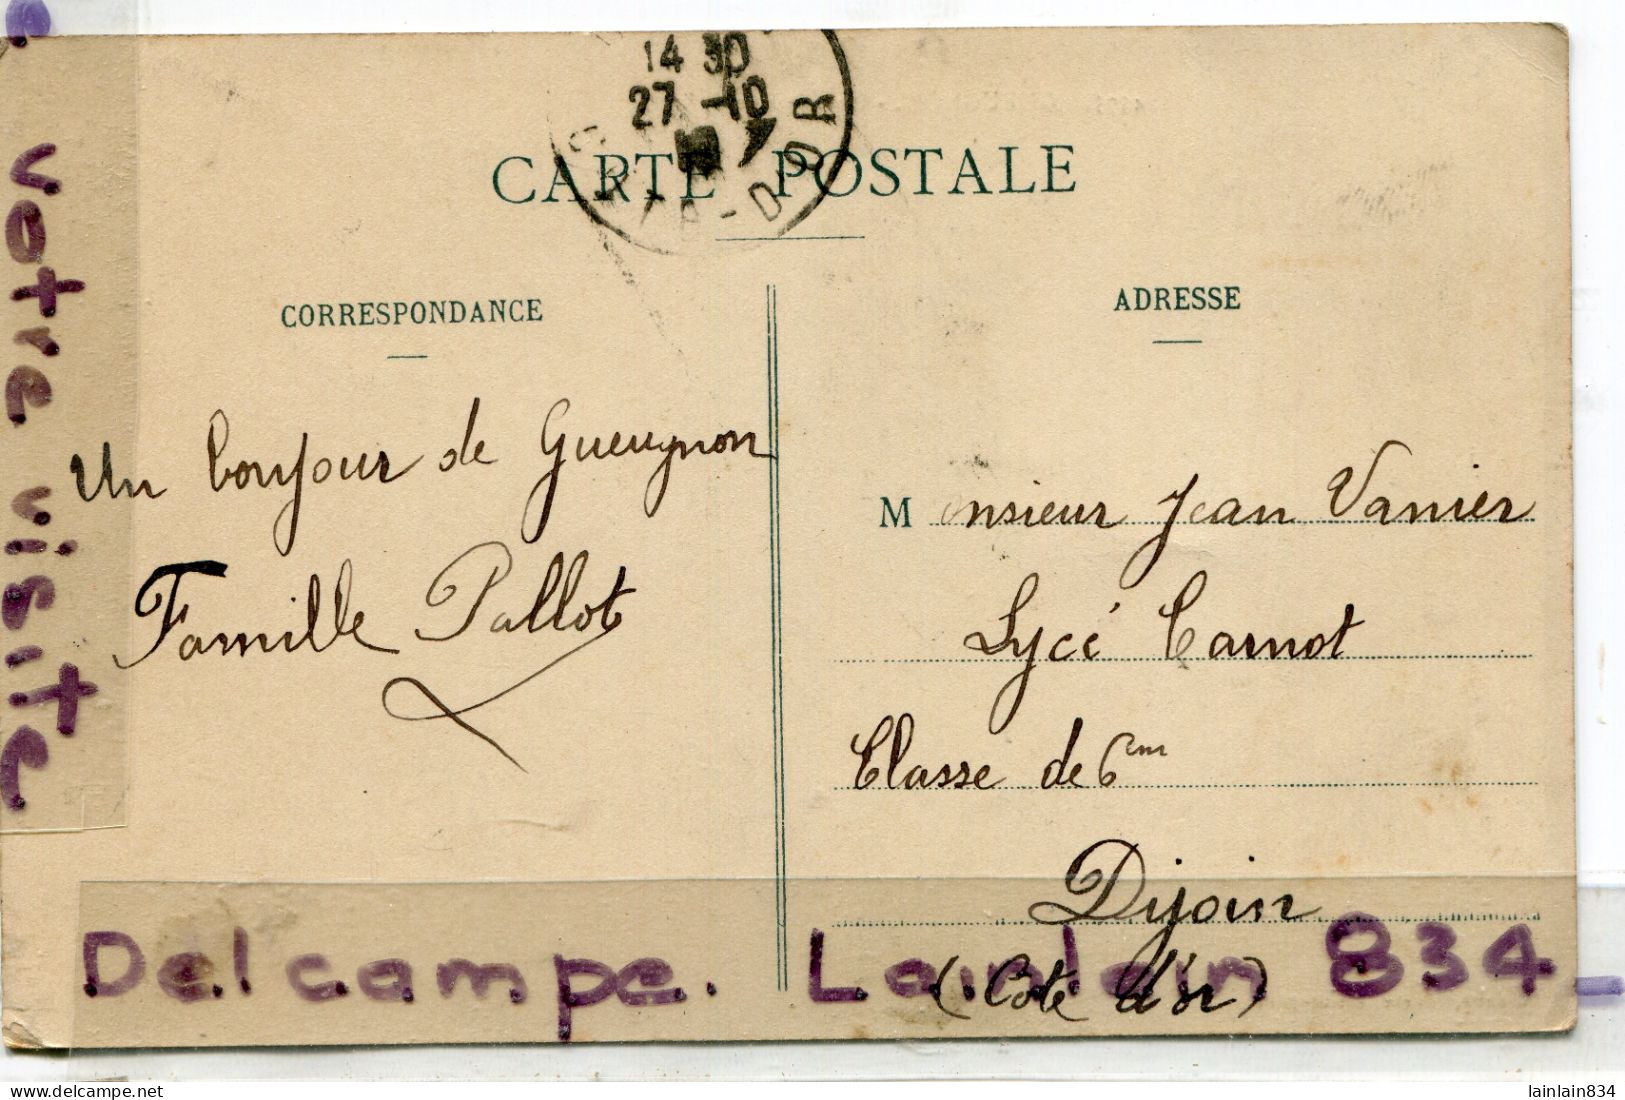 14 30
27 -10
D'OR
CARTE POSTALE
CORRESPONDANCE
Un bonjour de Gueugnon
Famille Pallot
ADRESSE
Monsieur Jean Vanier
Lycé Carnot
Classe de 6em
Dijoin
(Cote d'or)
votre visite
Delcampe. Lainlain 834
www.delcampe.net
lainlain834